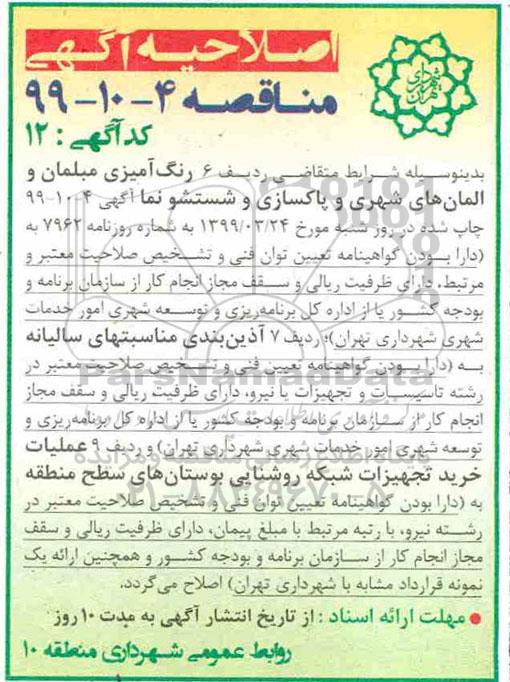 اصلاحیه آگهی
شهرداری تهران
مناقصه ۴-۱۰-۹۹
کدآگهی: ۱۲
بدینوسیله شرایط متقاضی ردیف ۶ رنگ‌آمیزی مبلمان و
المان‌های شهری و پاکسازی و شستشو نما آگهی ۴-۱۰-۹۹
چاپ شده در روز شنبه مورخ ۱۳۹۹/۰۳/۲۴ به شماره روزنامه ۷۹۶۲ به
(دارا بودن گواهینامه تعیین توان فنی و تشخیص صلاحیت معتبر و
مرتبط، دارای ظرفیت ریالی و سقف مجاز انجام کار از سازمان برنامه و
بودجه کشور یا از اداره کل برنامه‌ریزی و توسعه شهری امور خدمات
شهری شهرداری تهران)؛ ردیف ۷ آذین‌بندی مناسبتهای سالیانه
به (دارا بودن گواهینامه تعیین فنی و تشخیص صلاحیت معتبر در
رشته تاسیسات و تجهیزات یا نیرو، دارای ظرفیت ریالی و سقف مجاز
انجام کار از سازمان برنامه و بودجه کشور یا از اداره کل برنامه‌ریزی و
توسعه شهری امور خدمات شهری شهرداری تهران) و ردیف ۹ عملیات
خرید تجهیزات شبکه روشنایی بوستان‌های سطح منطقه
به (دارا بودن گواهینامه تعیین توان فنی و تشخیص صلاحیت معتبر در
رشته نیرو، با رتبه مرتبط با مبلغ پیمان، دارای ظرفیت ریالی و سقف
مجاز انجام کار از سازمان برنامه و بودجه کشور و همچنین ارائه یک
نمونه قرارداد مشابه با شهرداری تهران) اصلاح می‌گردد.
● مهلت ارائه اسناد: از تاریخ انتشار آگهی به مدت ۱۰ روز
روابط عمومی شهرداری منطقه ۱۰
ParsNamadData
۰۲۱-۸۸۳۴۹۶۷۰-۵